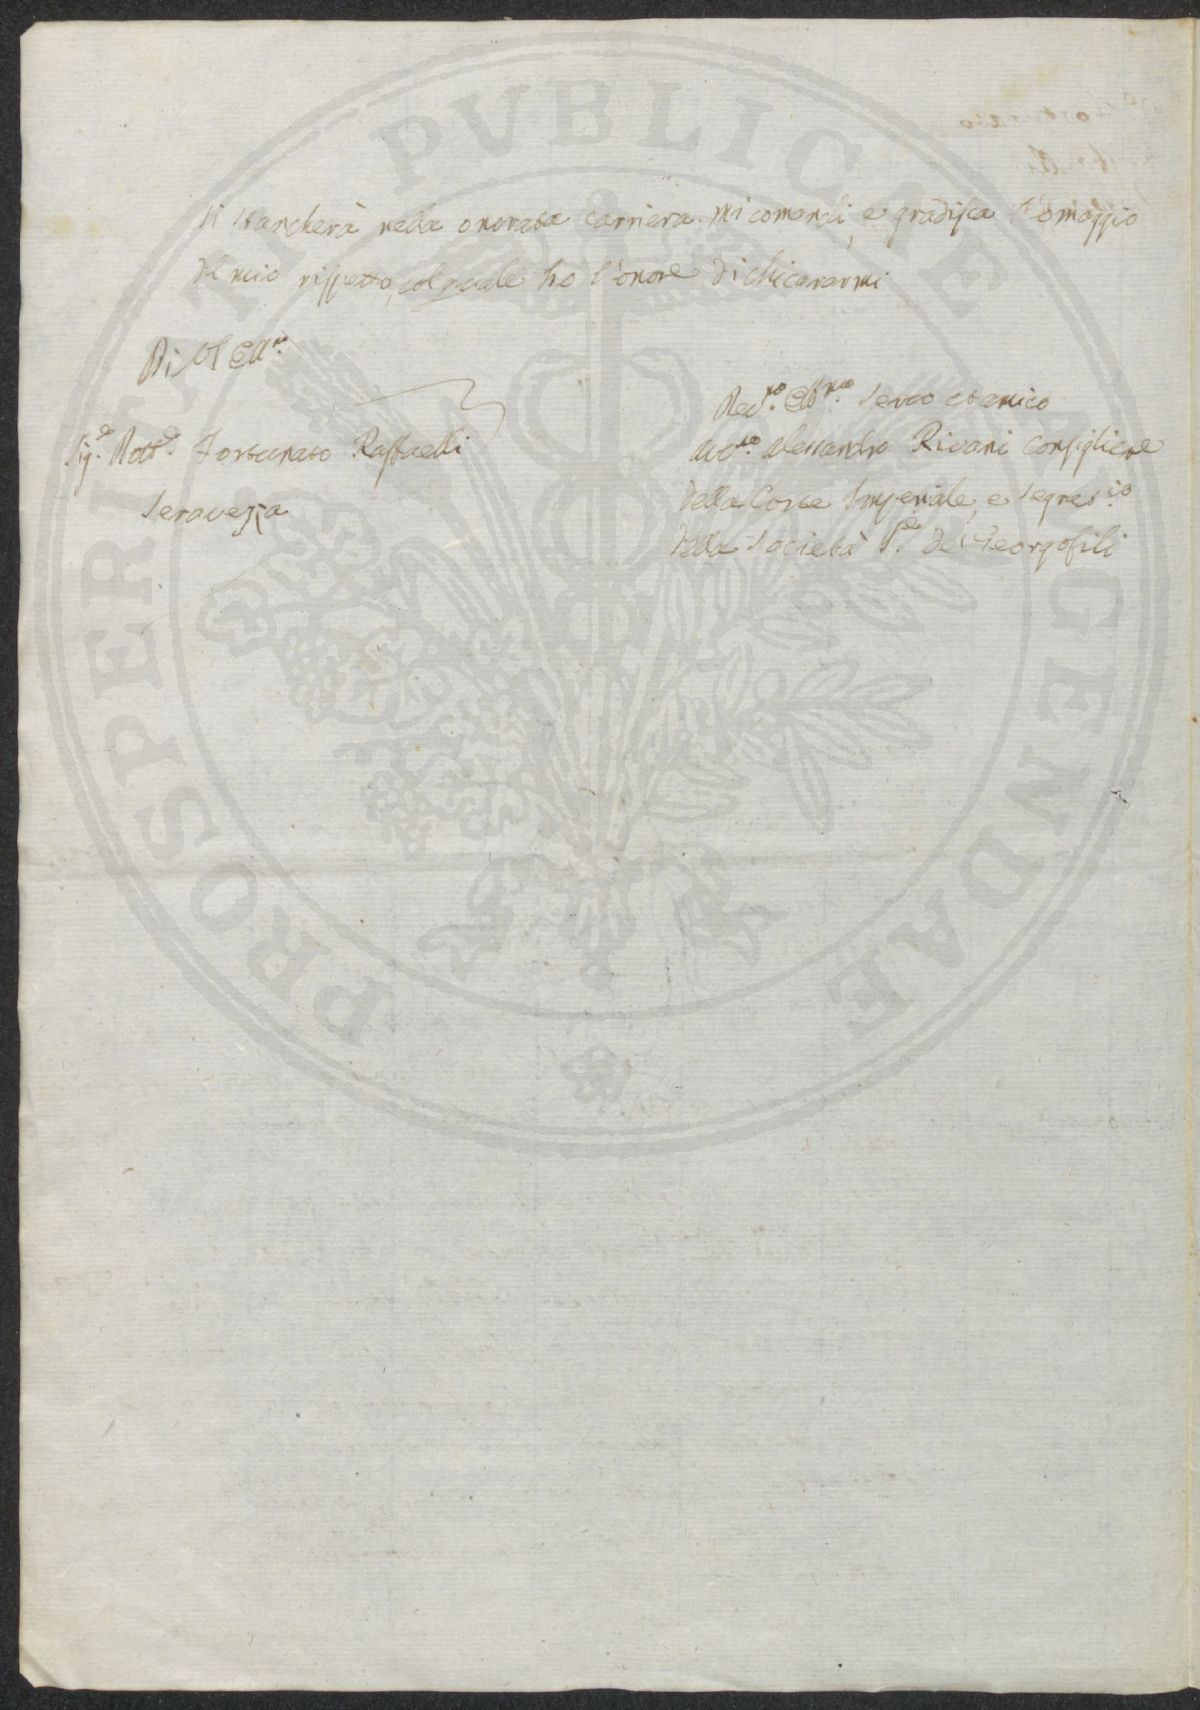 si stancherà nella onorata carriera. Mi comandi, e gradisca l'omaggio
del mio rispetto, col quale ho l'onore di dichiararmi
Di VS Ill.ma
Dev.mo Obb.mo Servo ed amico
Sig.e Dott.e Fortunato Raffaelli
Avv.to Alessandro Rivani Consigliere
Seravezza
della Corte Imperiale, e Segret.io
della Società I.le de' Georgofili
PROSPERITATI PVBLICAE AVGENDAE